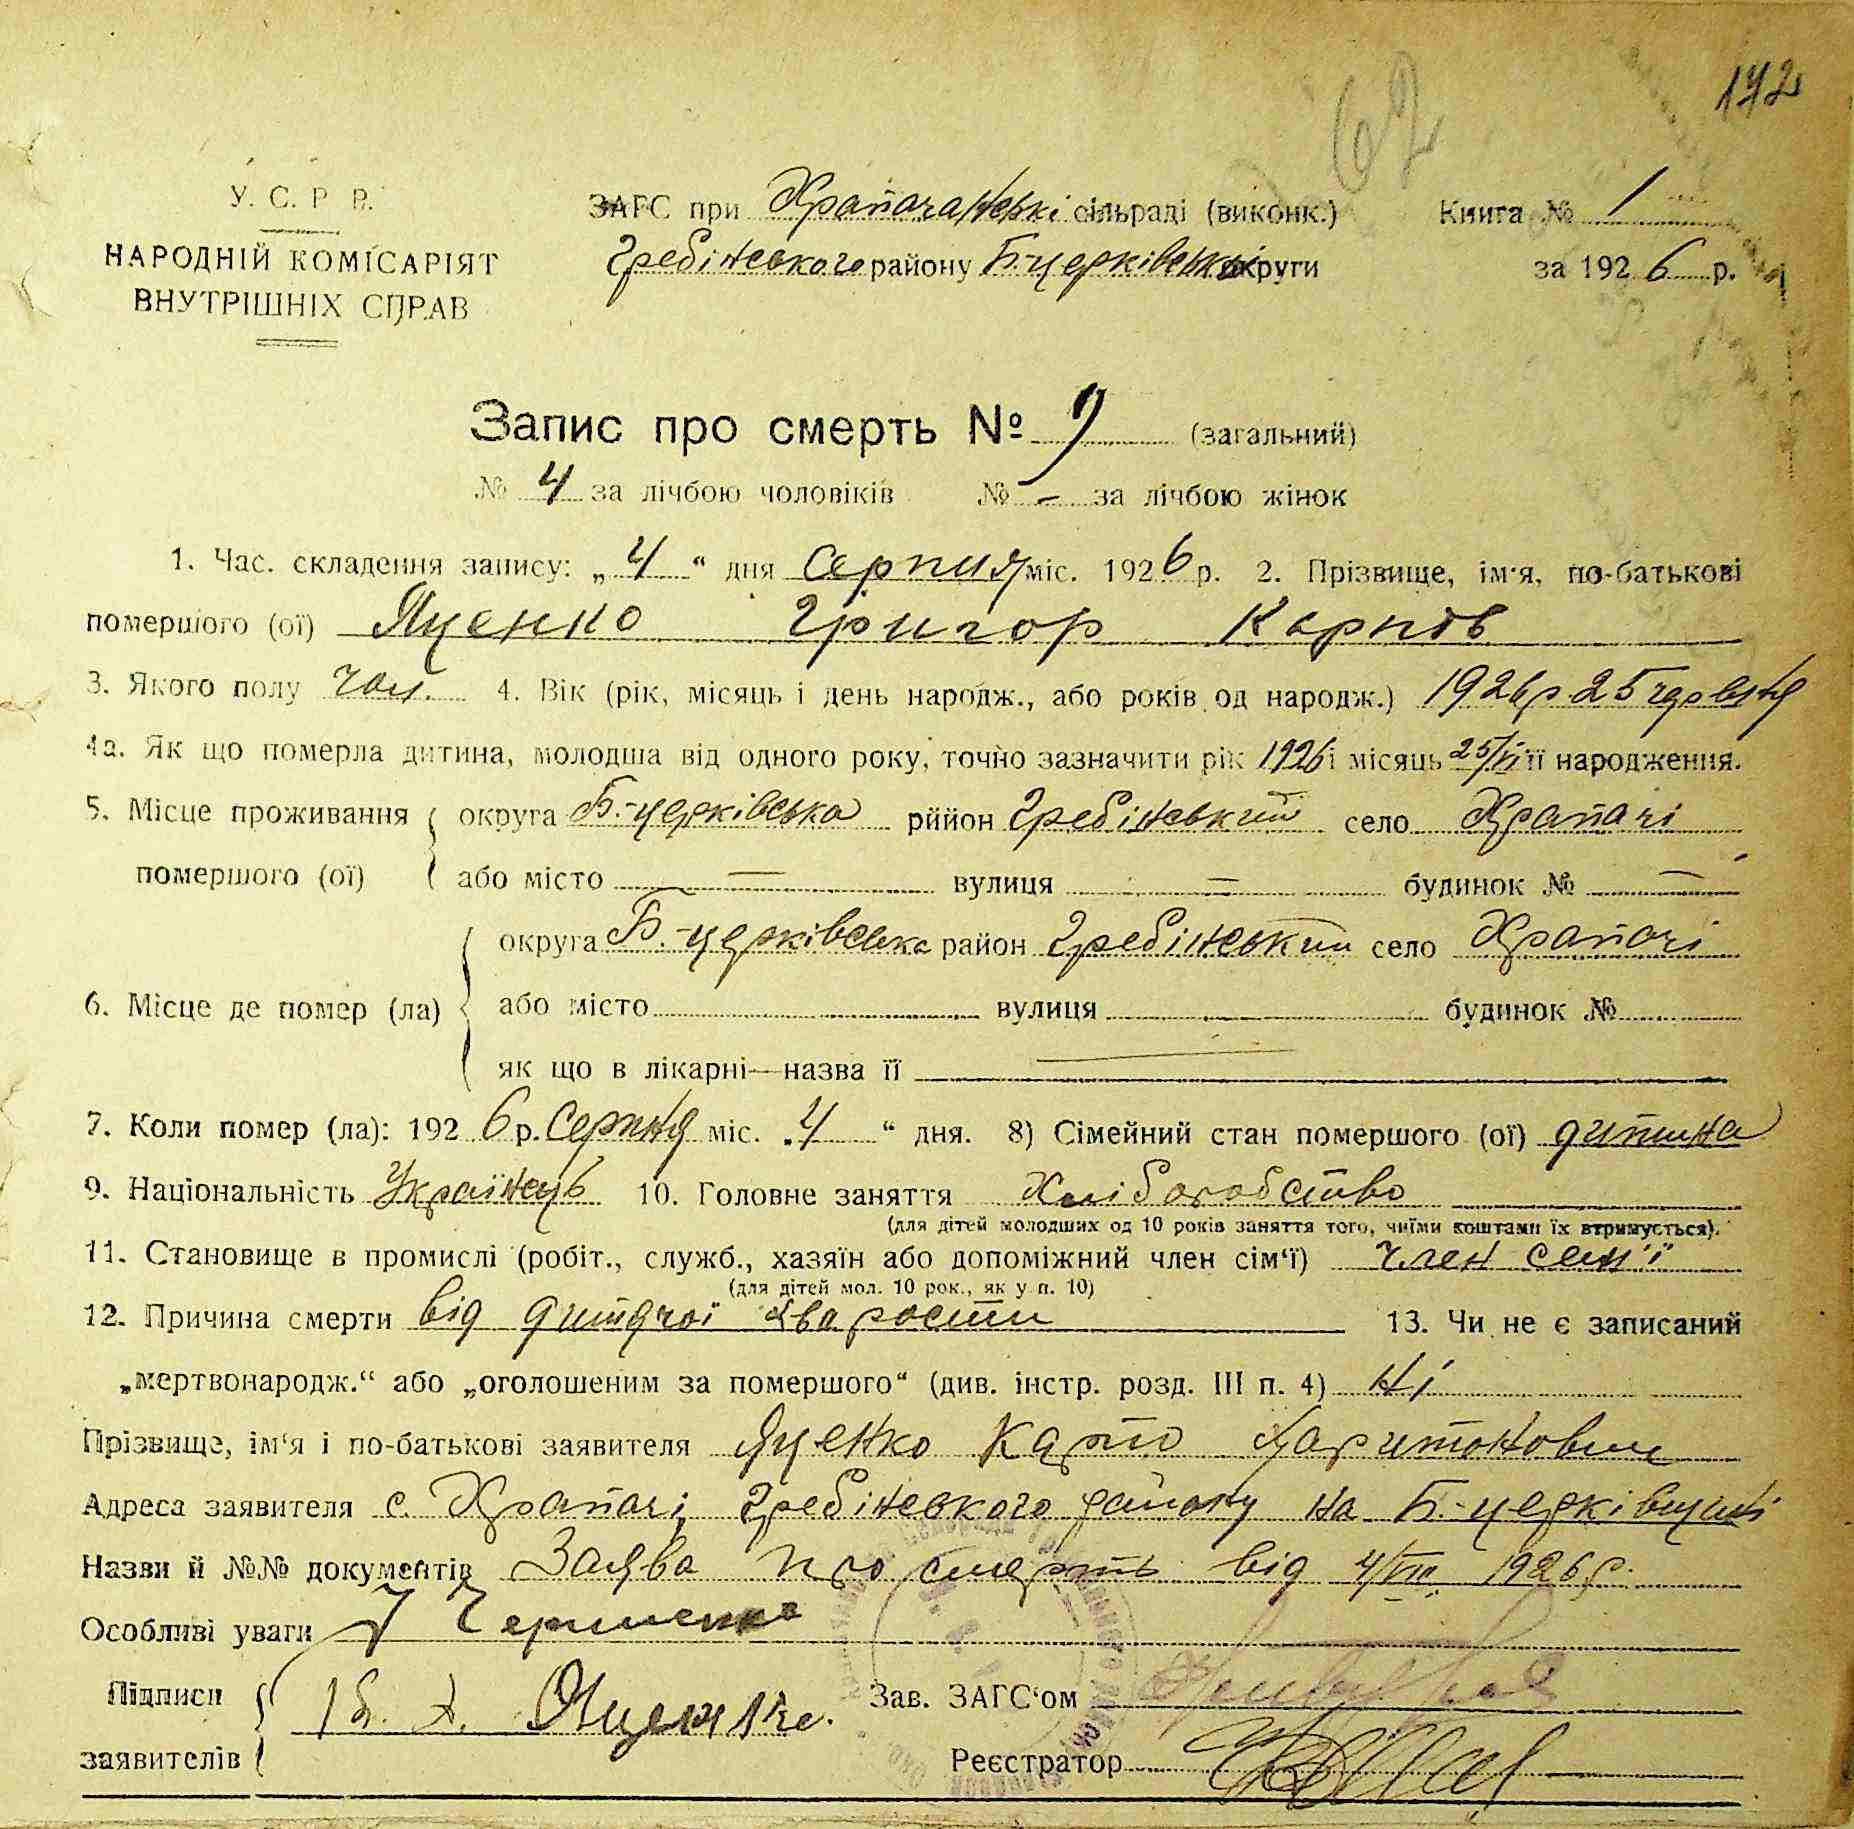 172
62
У. С. Р Р.
НАРОДНІЙ КОМІСАРІЯТ
ВНУТРІШНІХ СПРАВ
ЗАГС при Храпачанські сільраді (виконк.)
Гребінського району Б-церківськ округи
Книга № 1
за 1926 р.
Запис про смерть № 9 (загальний)
№ 4 за лічбою чоловіків № – за лічбою жінок
1. Час. складення запису: „4“ дня Серпня міс. 1926 р. 2. Прізвище, ім'я, по-батькові
помершого (ої) Яценко Григор Карпів
3. Якого полу чол. 4. Вік (рік, місяць і день народж., або років од народж.) 1926 р 25 червня
4а. Як що померла дитина, молодша від одного року, точно зазначити рік 1926 і місяць 25/VI її народження.
5. Місце проживання округа Б.-церківська рийон Гребінський село Храпачі
помершого (ої) або місто — вулиця — будинок № —
округа Б.-церківська район Гребінський село Храпачі
6. Місце де помер (ла) або місто вулиця будинок №
як що в лікарні—назва її —
7. Коли помер (ла): 1926 р. Серпня міс. „4“ дня. 8) Сімейний стан помершого (ої) дитина
9. Національність Українець 10. Головне заняття Хліборобство
(для дітей молодших од 10 років заняття того, чиїми коштами їх втримується).
11. Становище в промислі (робіт., служб., хазяїн або допоміжний член сім'ї) член сем'ї
(для дітей мол. 10 рок., як у п. 10)
12. Причина смерти від дитячої хварости 13. Чи не є записаний
„мертвонародж.“ або „оголошеним за помершого“ (див. інстр. розд. III п. 4) Ні
Прізвище, ім'я і по-батькові заявителя Яценко Карпо Харитонович
Адреса заявителя с. Храпачі, Гребінського району на Б.-церківщині
Назви й №№ документів Заява про смерть від 4/VIII 1926 р.
Особливі уваги
Підписи
заявителів Яценко.
Зав. ЗАГС'ом
Реєстратор